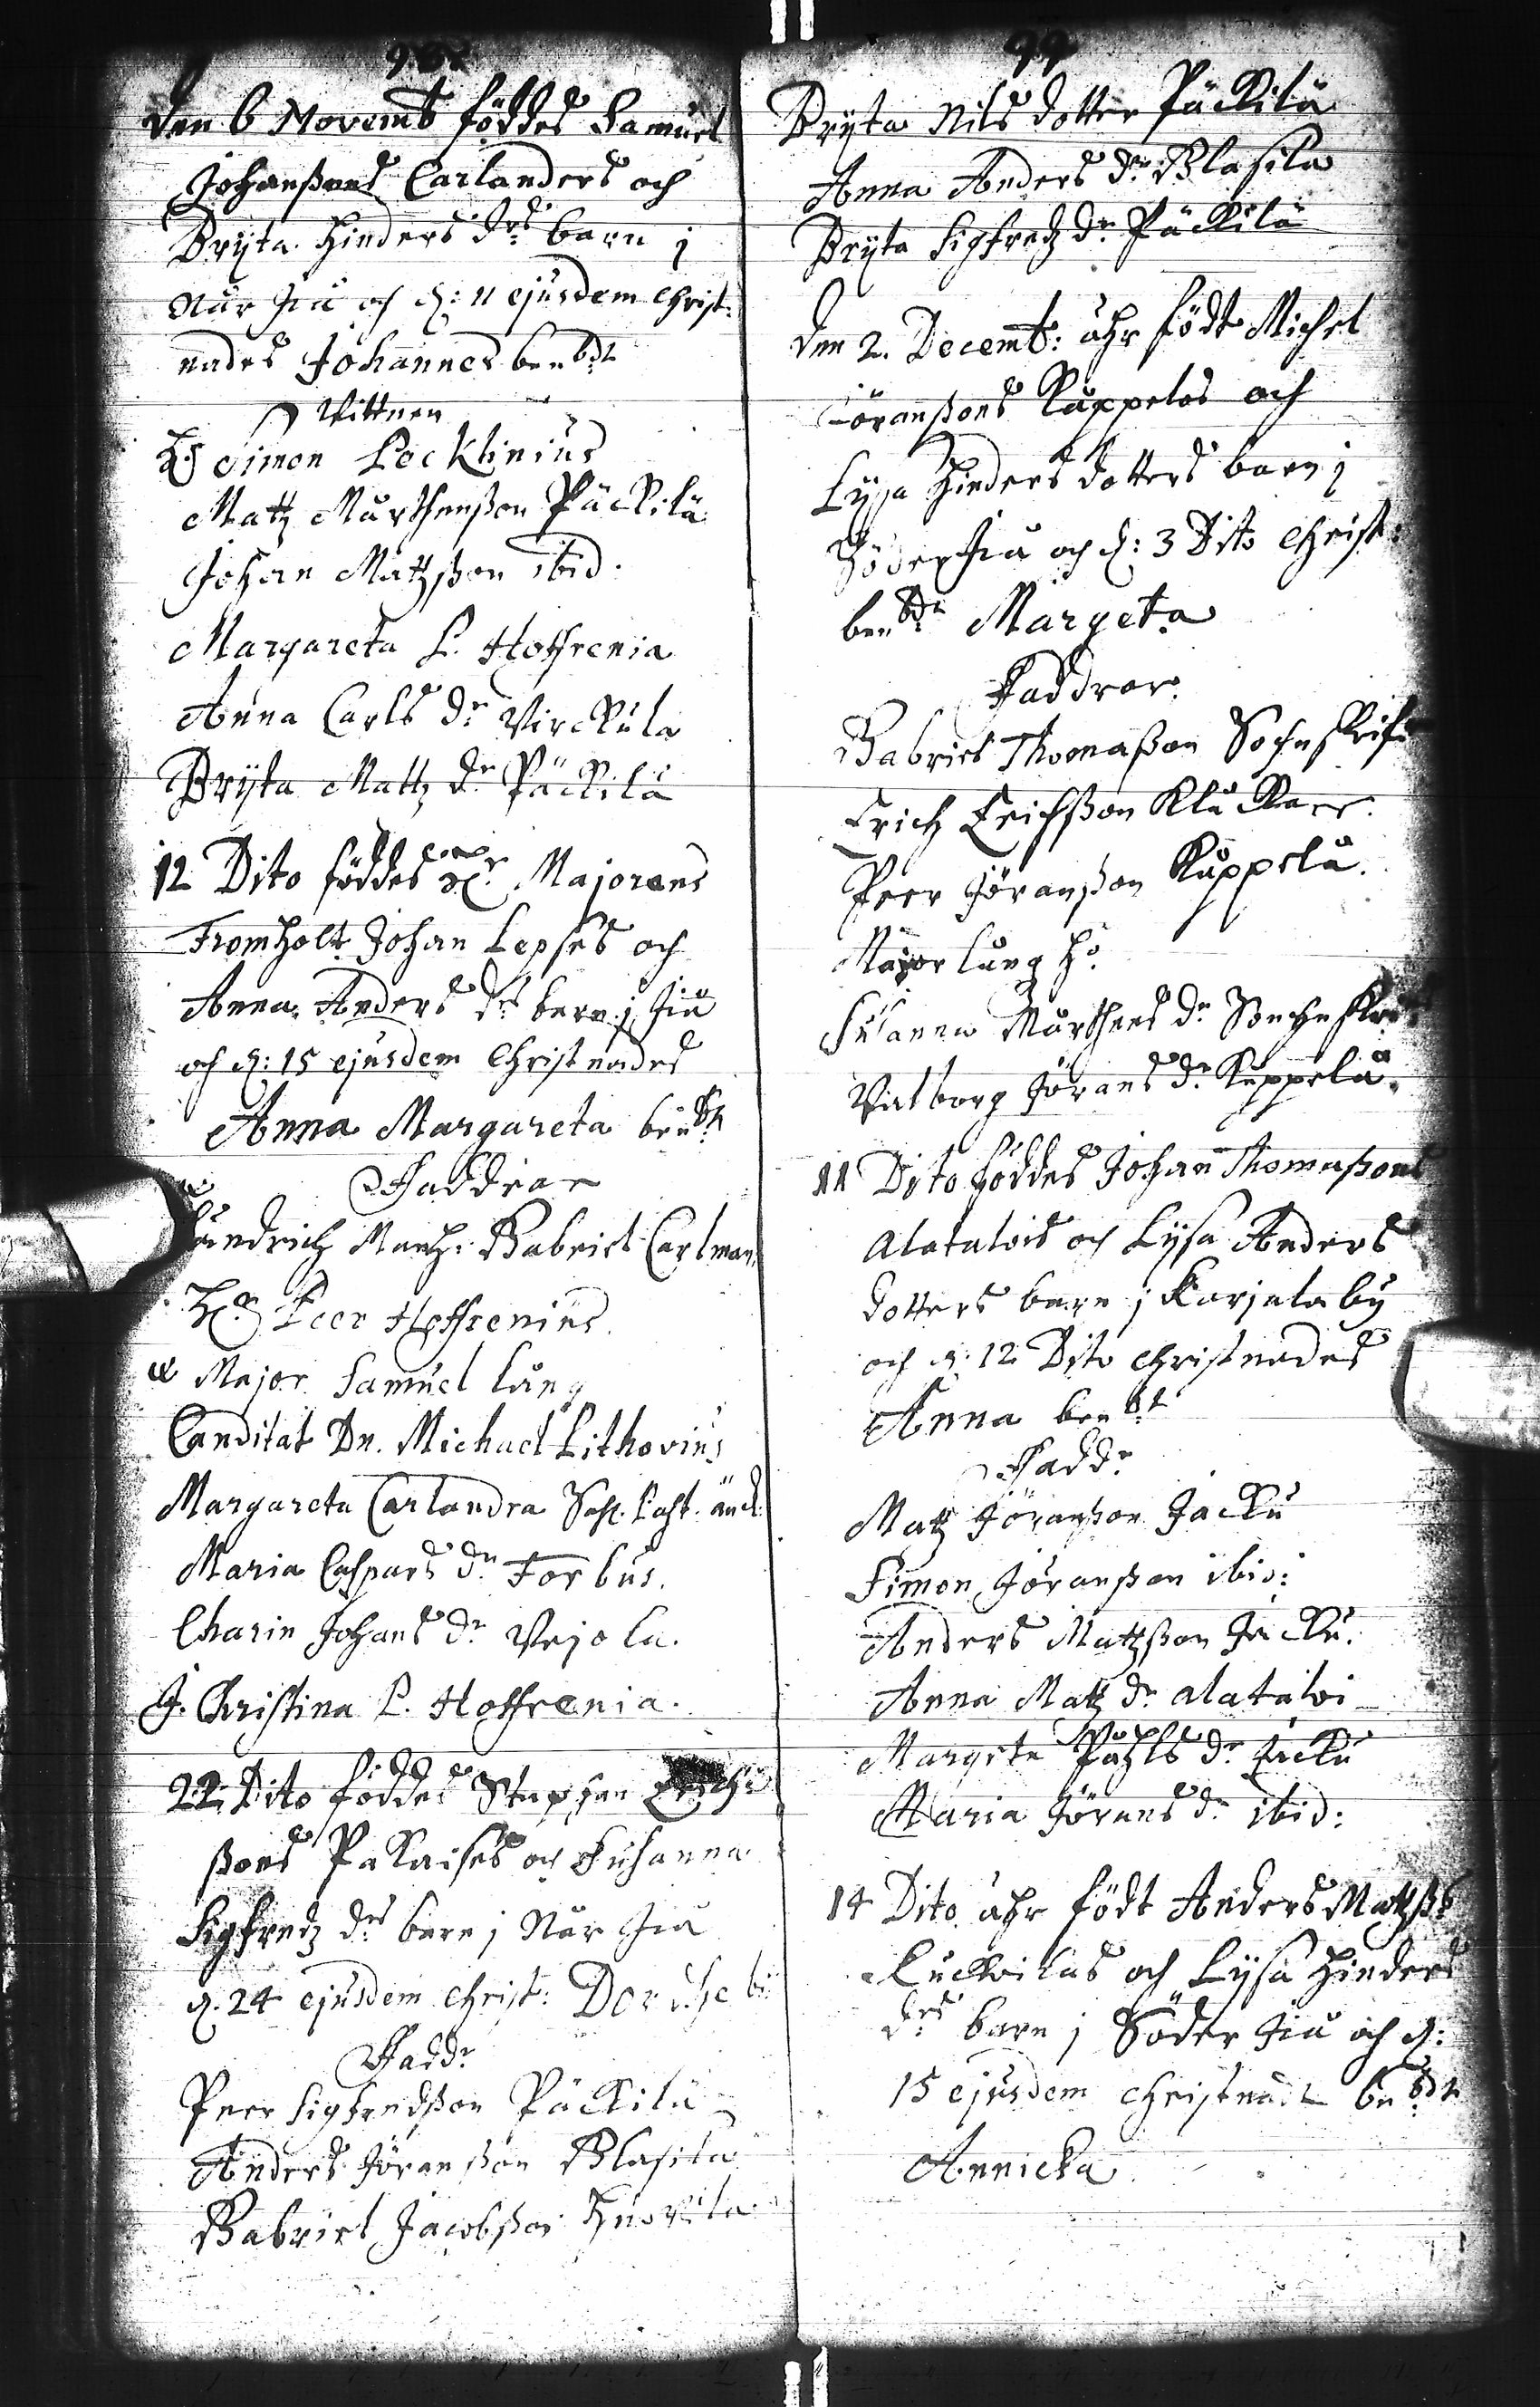 98
den 6 Novemb föddes Samuel
Johanßons Carlanders och
Bryta Hinders drs barn j
När Jiä och d: 11 ejusdem Christ:
nades Johannes benbdt
Wittnen
Hr Simon Locklinius
Mattz Mårthenßon Päckilä
Johan Mattzßon ibid.
Margareta P. Hoffrenia
Anna Carls dr Virckula
Bryta Mattz dr Päckilä
12 Dito föddes H. Majorens
Fromholt Johan Lepses och
Anna Anders drs barn j Jiä
och d: 15 ejusdem Christnades
Anna Margareta benbdt
Faddrar
Gabriel Carlman
Hr Peer Hoffrenius
Major Samuel Lång
Canditat Dn. Michael Lithovius
Margareta Carlandra änck.
Maria Caspars dr Forbus.
Charin Johans dr Vejola.
J. Christina P. Hoffrenia.
22 Dito föddes Staphan Erichs
ßons Pakaises och Susanna
Sigfredz drs barn j När Jiä
d. 24 ejusdem Christ:
Faddr
Peer Sigfredßon Päckilä
Anders Jöranßon Blasila
Gabriel Jacobßon
99
Bryta Nils dotter Päckilä
Anna Anders dr Blasila
Bryta Sigfredz dr Päckilä
den 2. Decemb: ähr födt Michel
Jöranßons Kuppelas och
Lysa Hinders dotters barn j
Söder Jiä och d: 3 Dito Christ:
benbdt Margeta
Faddrar.
Gabriel Thomaßon
Erich Erichßon Kluckare
Peer Jöranßon Kuppelu.
Major Lång
Susanna Mårthens dr
Valborg Jörans dr Kuppela.
11 Dito föddes Johan Thomaßons
Alatalois och Lysa Anders
dotters barn j Karjalaby
och d. 12 Dito christnades
Anna benbdt
Faddr
Mattz Jöranßon Jacku
Simon Jöranßon ibid:
Anders Mattzßon Jacku.
Anna Mattz dr Alataloi
Margeta Påhls dr Jacku
Maria Jörans dr ibid:
14 Dito ähr födt Anders Mattzßs
Luckilas och Lysa Hinders
drs barn j Söder Jiä och d:
15 ejusdem christnadt benbdt
Annicka